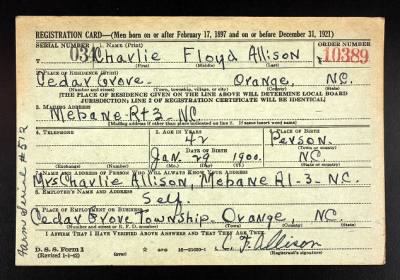 REGISTRATION CARD—(Men born on or after February 17, 1897 and on or before December 31, 1921)
SERIAL NUMBER 1. NAME (Print) ORDER NUMBER
T 034 Charlie Floyd Allison 10389
(First) (Middle) (Last)
2. PLACE OF RESIDENCE (Print)
Cedar Grove. Orange, NC.
(Number and street) (Town, township, village, or city) (County) (State)
[THE PLACE OF RESIDENCE GIVEN ON THE LINE ABOVE WILL DETERMINE LOCAL BOARD
JURISDICTION; LINE 2 OF REGISTRATION CERTIFICATE WILL BE IDENTICAL]
3. MAILING ADDRESS
Mebane Rt 3 - NC
[Mailing address if other than place indicated on line 2. If same insert word same]
4. TELEPHONE 5. AGE IN YEARS 6. PLACE OF BIRTH
42 Person.
DATE OF BIRTH (Town or county)
Jan. 29 1900. NC.
(Exchange) (Number) (Mo.) (Day) (Yr.) (State or country)
7. NAME AND ADDRESS OF PERSON WHO WILL ALWAYS KNOW YOUR ADDRESS
Mrs Charlie Allison, Mebane R1-3-NC.
8. EMPLOYER'S NAME AND ADDRESS
Self.
9. PLACE OF EMPLOYMENT OR BUSINESS
Cedar Grove Township. Orange, NC.
(Number and street or R. F. D. number) (Town) (County) (State)
I AFFIRM THAT I HAVE VERIFIED ABOVE ANSWERS AND THAT THEY ARE TRUE.
D. S. S. Form 1
(Revised 1-1-42)
C. F. Allison
(Registrant's signature)
Farm Serial #512